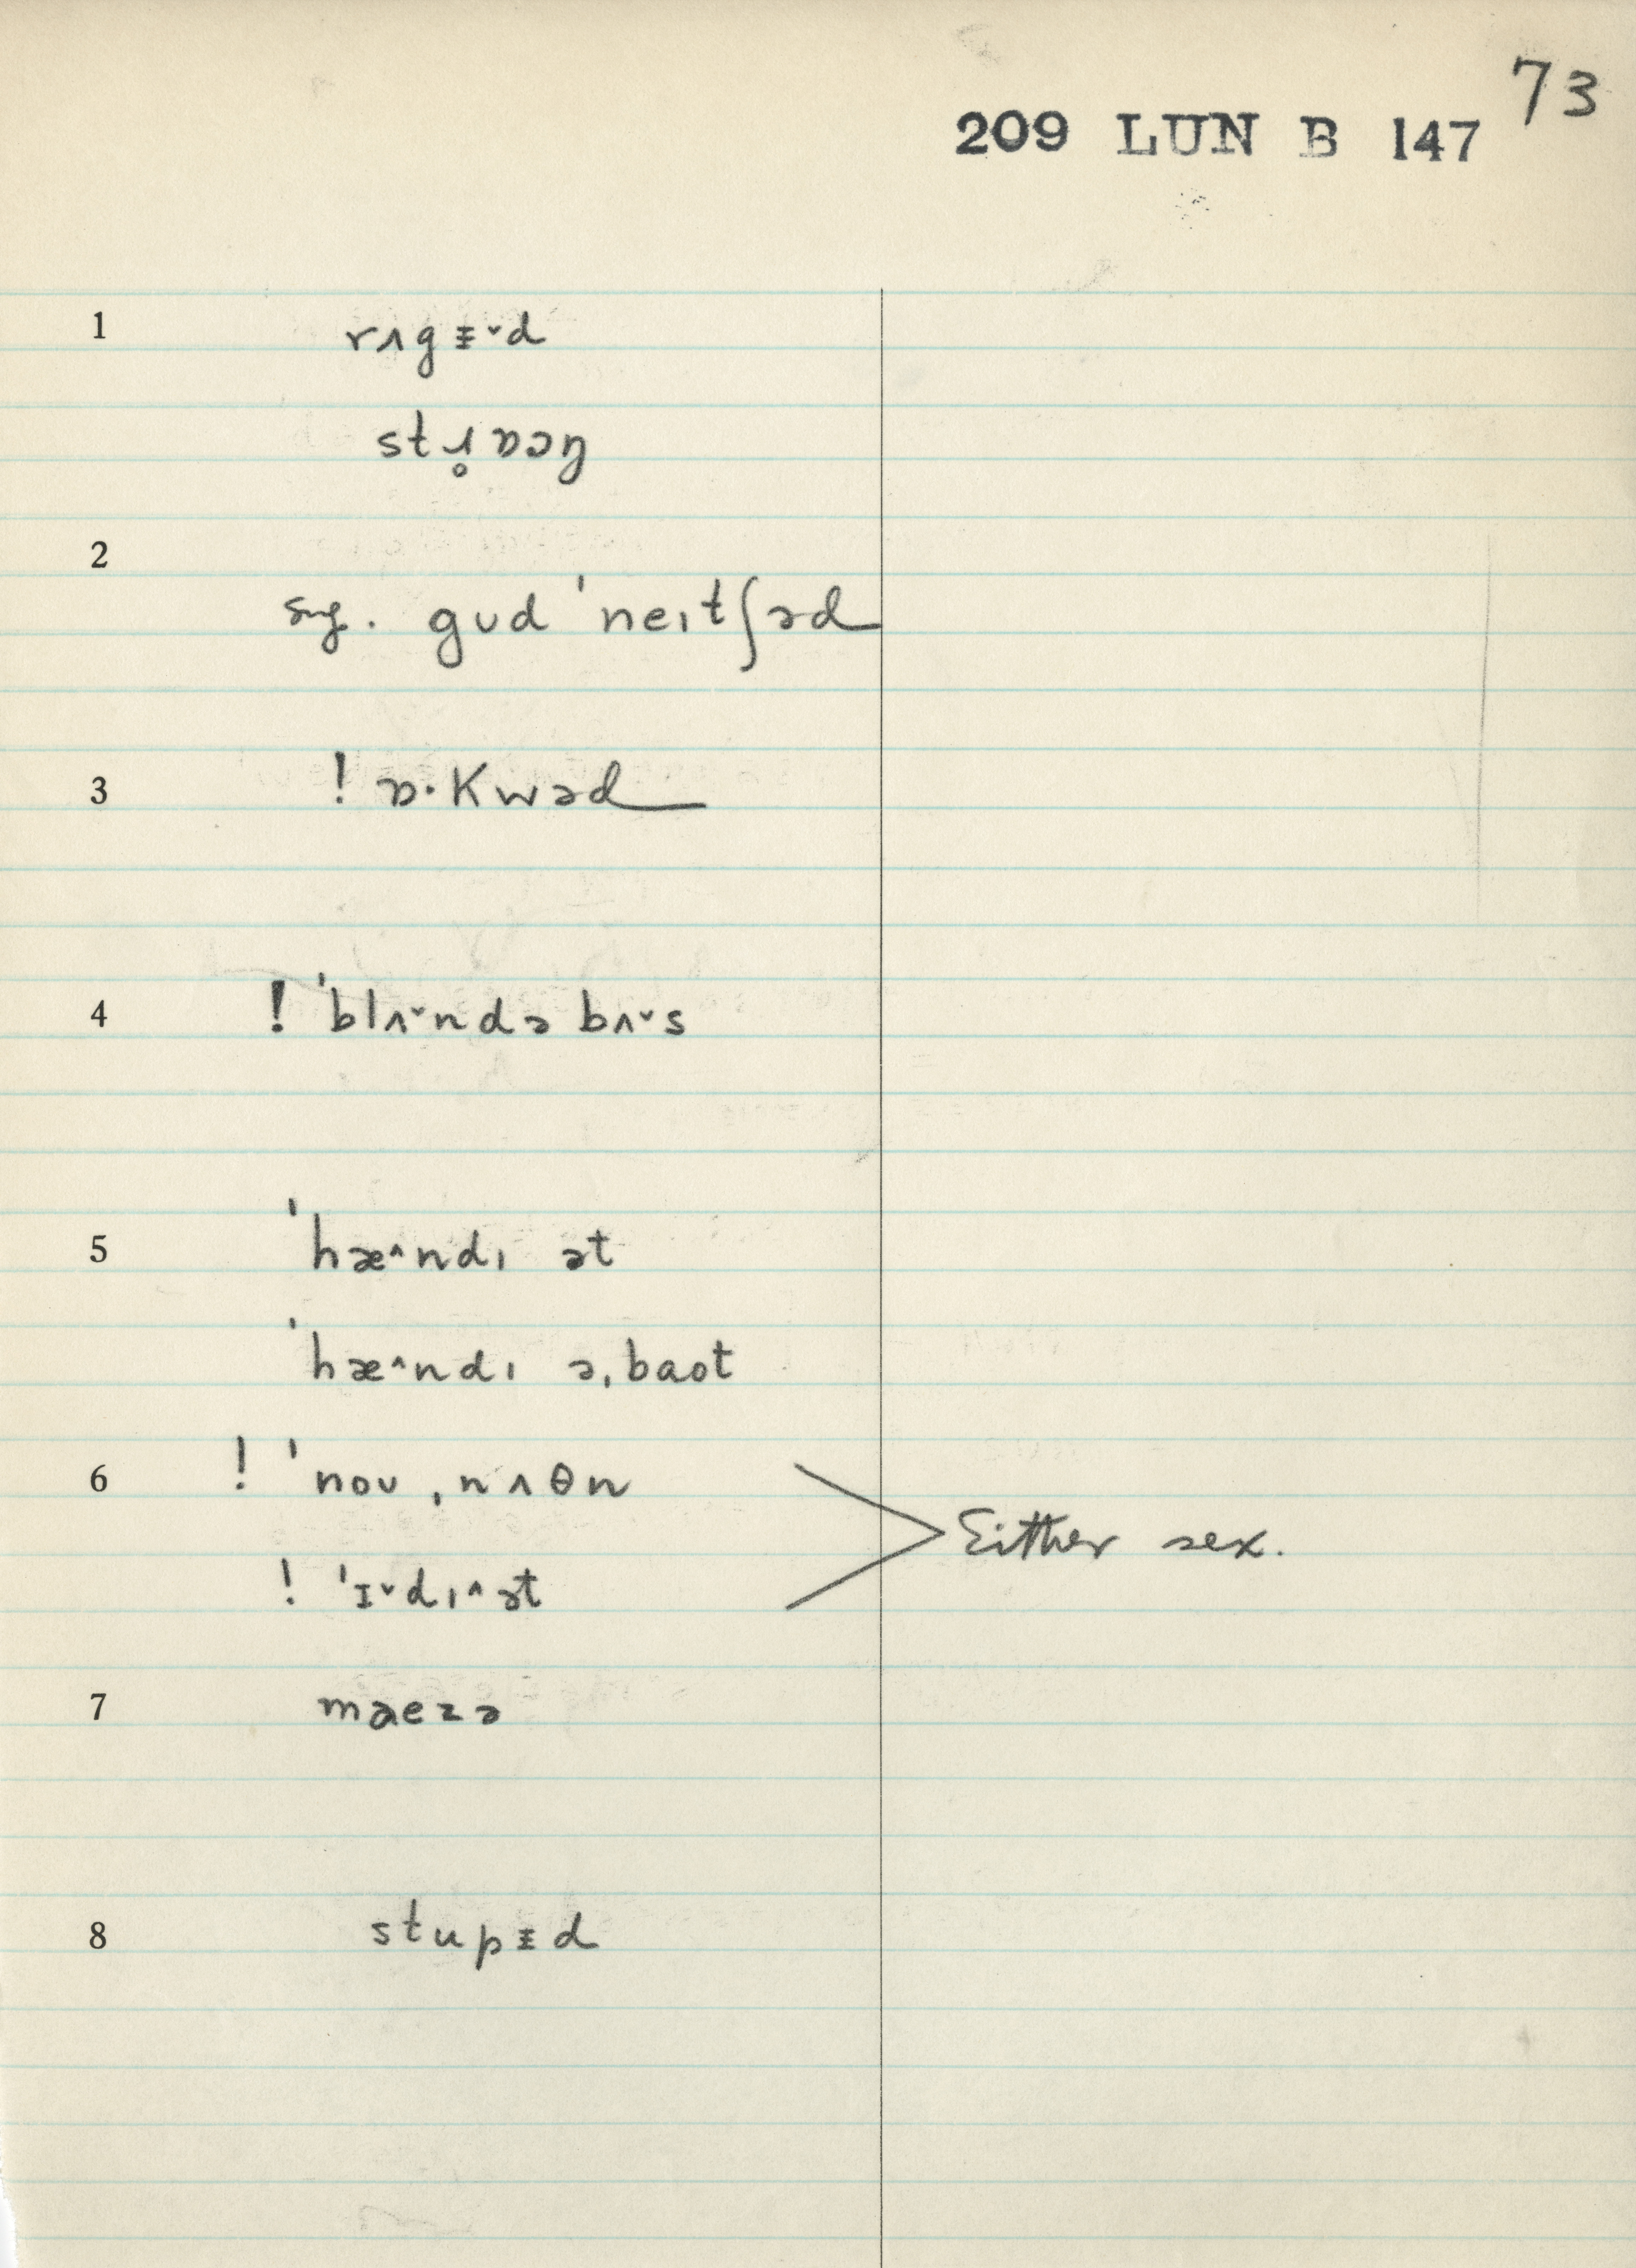 73
209 LUN B 147
1 rʌgᵻ˅d
stɹ̥ɒɔŋ
2
sug. gʊd ˈneɪtʃəd
3 ! ɒ·Kwəd
4 ! ˈblʌ˅ndə bʌ˅s
5 ˈhæ˄ndɪ ət
ˈhæ˄ndɪ əˌbaʊt
6 ! ˈnoʊ ˌnʌθn
Either sex.
! ˈɪ˅dɪ˄ət
7 maezə
8 stupᵻd